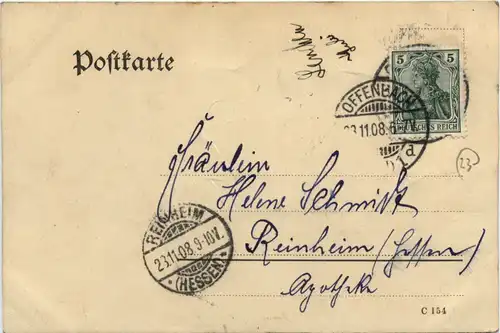 Postkarte
5 5
DEUTSCHES REICH
OFFENBACH
23.11.08.6-7V.
Fräulein
Helene Schmidt
Reinheim (Hessen)
Apotheke
REINHEIM
23.11.08.9-10V.
(HESSEN)
23
C 154